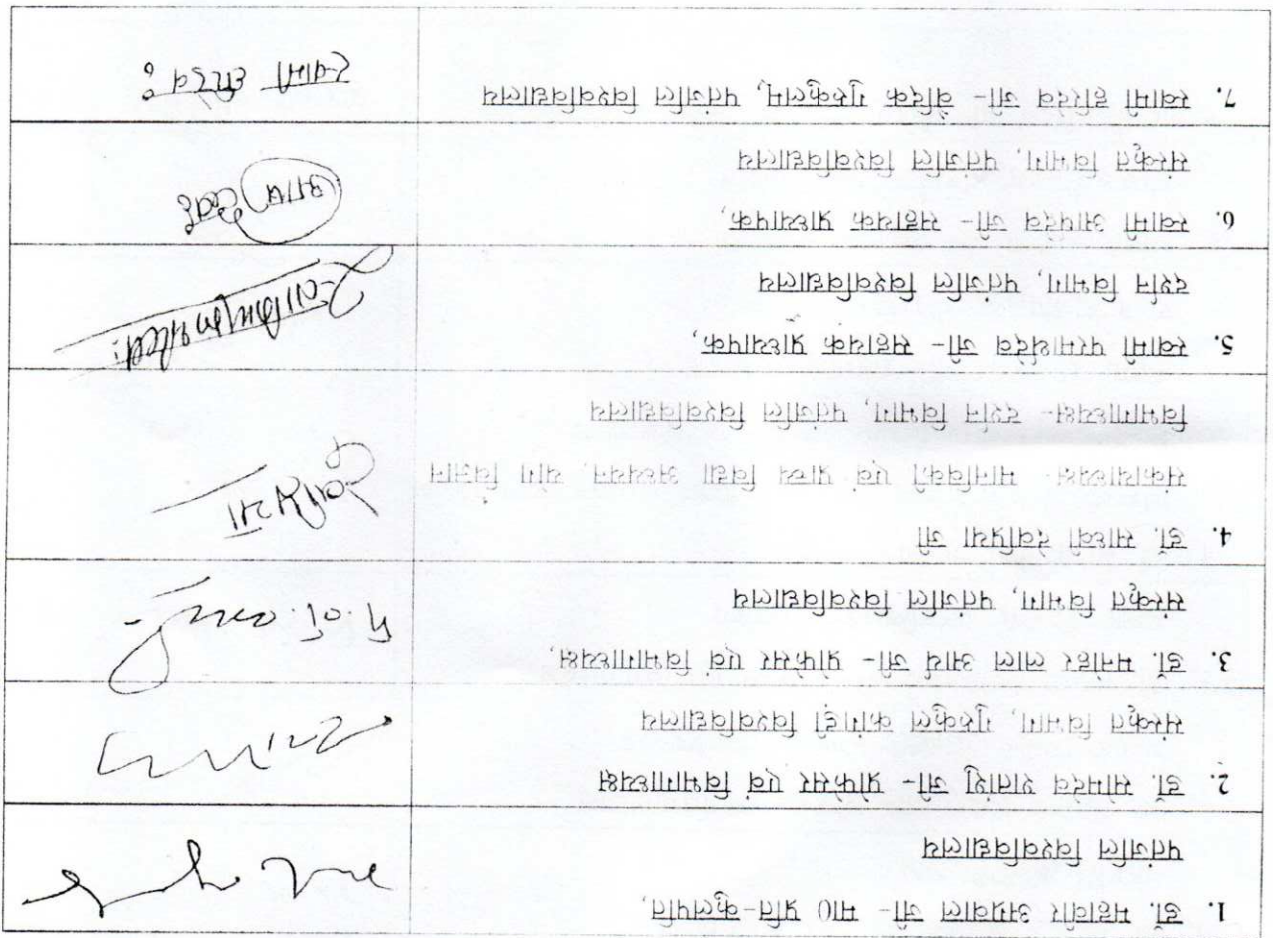 1. डॉ. महावीर अग्रवाल जी- मा0 प्रति-कुलपति,
पतंजलि विश्वविद्यालय
2. डॉ. सोमदेव शतांशु जी- प्रोफेसर एवं विभागाध्यक्ष
संस्कृत विभाग, गुरुकुल कांगड़ी विश्वविद्यालय
3. डॉ. मनोहर लाल आर्य जी- प्रोफेसर एवं विभागाध्यक्ष,
संस्कृत विभाग, पतंजलि विश्वविद्यालय
4. डॉ. साध्वी देवप्रिया जी
संकायाध्यक्ष- मानविकी एवं प्राच्य विद्या अध्ययन, योग विज्ञान
विभागाध्यक्ष- दर्शन विभाग, पतंजलि विश्वविद्यालय
5. स्वामी परमार्थदेव जी- सहायक प्राध्यापक,
दर्शन विभाग, पतंजलि विश्वविद्यालय
6. स्वामी आर्षदेव जी- सहायक प्राध्यापक,
संस्कृत विभाग, पतंजलि विश्वविद्यालय
7. स्वामी हरिदेव जी- वैदिक गुरुकुलम्, पतंजलि विश्वविद्यालय